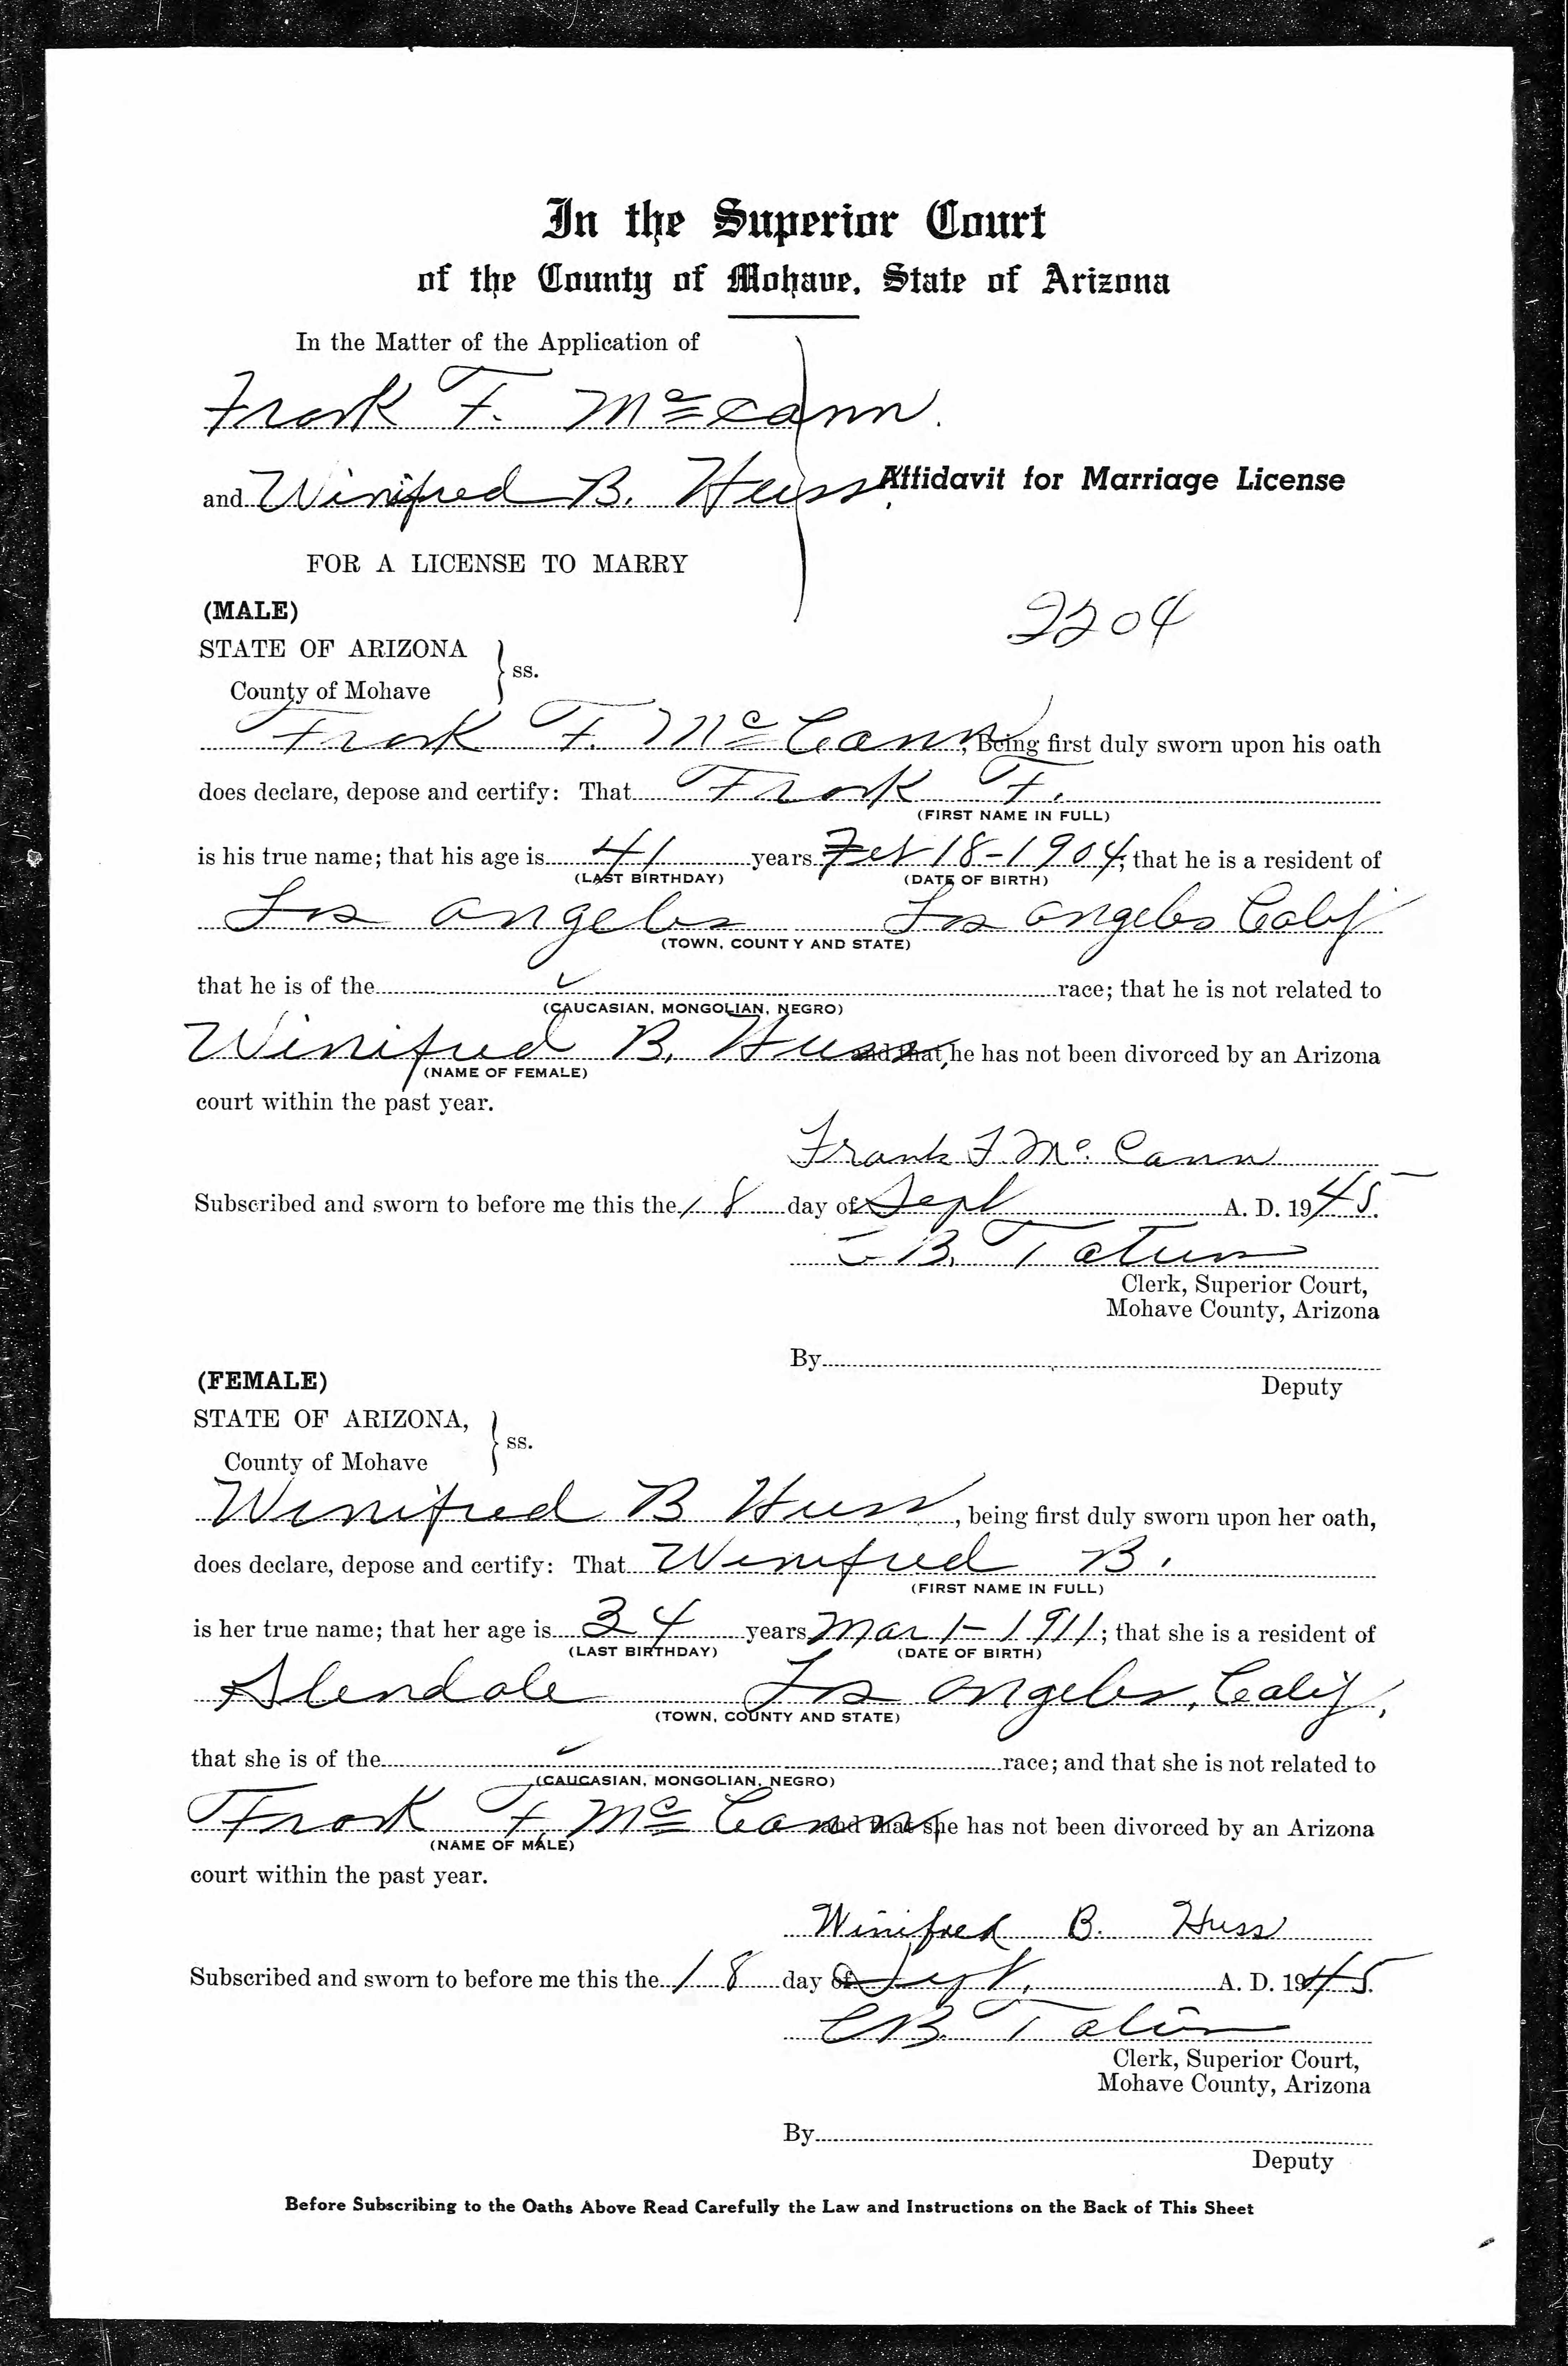 In the Superior Court
of the County of Mohave, State of Arizona
In the Matter of the Application of
Frank F. McCann.
and Winifred B. Huss, Affidavit for Marriage License
FOR A LICENSE TO MARRY
(MALE)
2204
STATE OF ARIZONA
ss.
County of Mohave
Frank F. McCann, Being first duly sworn upon his oath
does declare, depose and certify: That Frank F.
(FIRST NAME IN FULL)
is his true name; that his age is 41 years Feb 18-1904; that he is a resident of
(LAST BIRTHDAY) (DATE OF BIRTH)
Los Angeles Los Angeles Calif
(TOWN, COUNTY AND STATE)
that he is of the ✓ race; that he is not related to
(CAUCASIAN, MONGOLIAN, NEGRO)
Winifred B. Huss, and that he has not been divorced by an Arizona
(NAME OF FEMALE)
court within the past year.
Frank F. McCann
Subscribed and sworn to before me this the 18 day of Sept A. D. 1945.
B. Tatum
Clerk, Superior Court,
Mohave County, Arizona
By
Deputy
(FEMALE)
STATE OF ARIZONA,
ss.
County of Mohave
Winifred B Huss, being first duly sworn upon her oath,
does declare, depose and certify: That Winifred B.
(FIRST NAME IN FULL)
is her true name; that her age is 34 years Mar 1-1911; that she is a resident of
(LAST BIRTHDAY) (DATE OF BIRTH)
Glendale Los Angeles, Calif,
(TOWN, COUNTY AND STATE)
that she is of the ✓ race; and that she is not related to
(CAUCASIAN, MONGOLIAN, NEGRO)
Frank F. McCann and that she has not been divorced by an Arizona
(NAME OF MALE)
court within the past year.
Winifred B. Huss
Subscribed and sworn to before me this the 18 day of Sept. A. D. 1945.
B. Tatum
Clerk, Superior Court,
Mohave County, Arizona
By
Deputy
Before Subscribing to the Oaths Above Read Carefully the Law and Instructions on the Back of This Sheet